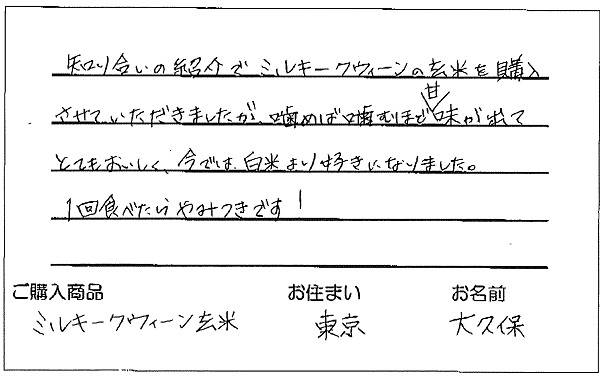 知り合いの紹介でミルキークウィーンの玄米を購入
させていただきましたが、噛めば噛むほど甘味が出て
とてもおいしく、今では白米より好きになりました。
1回食べたらやみつきです!
ご購入商品 お住まい お名前
ミルキークウィーン玄米 東京 大久保